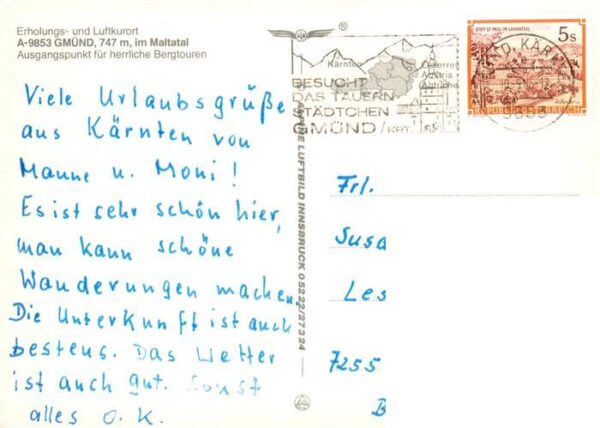 Erholungs- und Luftkurort
A-9853 GMÜND, 747 m, im Maltatal
Ausgangspunkt für herrliche Bergtouren
Viele Urlaubsgrüße
aus Kärnten von
Manne u. Moni!
Es ist sehr schön hier,
man kann schöne
Wanderungen machen.
Die Unterkunft ist auch
bestens. Das Wetter
ist auch gut. Sonst
alles O.K.
ALPINE LUFTBILD INNSBRUCK 0 52 22/27 3 24
®
Kärnten
Österreich
Austria
Autriche
BESUCHT
DAS TAUERN
STÄDTCHEN
GMÜND/KRT.
STIFT ST. PAUL IM LAVANTTAL
5s
REPUBLIK ÖSTERREICH
9853
Frl.
Susa
Les
7255
B